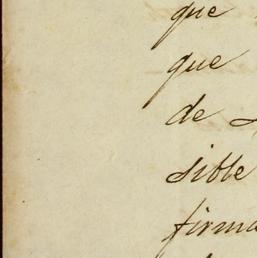 que
que
de
sible
firma